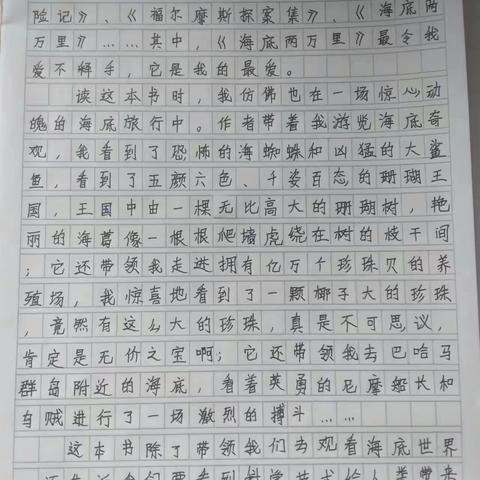 险记》、《福尔摩斯探案集》、《海底两
万里》……其中，《海底两万里》最令我
爱不释手，它是我的最爱。
读这本书时，我仿佛也在一场惊心动
魄的海底旅行中。作者带着我游览海底奇
观，我看到了恐怖的海蜘蛛和凶猛的大鲨
鱼，看到了五颜六色、千姿百态的珊瑚王
国，王国中由一棵无比高大的珊瑚树，艳
丽的海葛像一根根爬墙虎绕在树的枝干间
；它还带领我走进拥有亿万千珍珠贝的养
殖场，我惊喜地看到了一颗椰子大的珍珠
，竟然有这么大的珍珠，真是不可思议，
肯定是无价之宝啊；它还带领我去巴哈马
群岛附近的海底，看着英勇的尼摩船长和
乌贼进行了一场激烈的搏斗……
这本书除了带领我们去观看海底世界